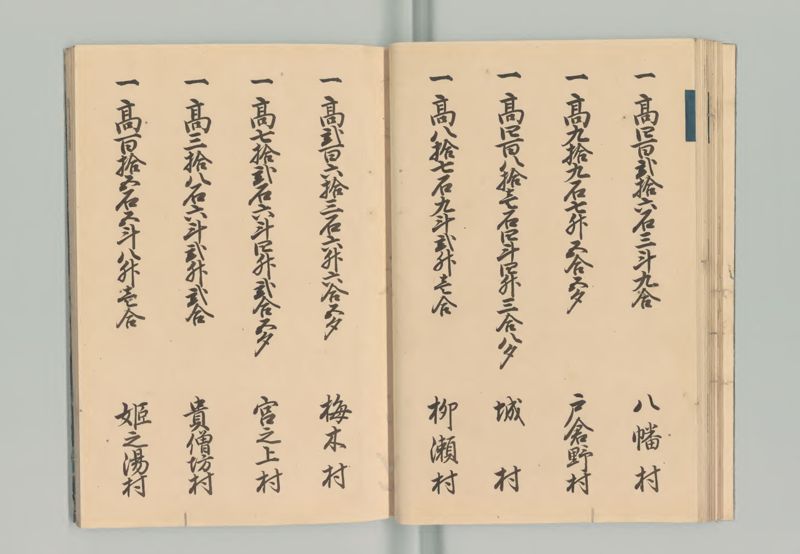 一 高四百弐拾六石三斗九合 八幡村
一 高九拾九石七升五合五夕 戸倉野村
一 高四百八拾壱石四斗四升三合八夕 城村
一 高八拾七石九斗弐升壱合 柳瀬村
一 高弐百六拾三石六升六合五夕 梅木村
一 高七拾弐石六斗四升弐合五夕 宮之上村
一 高三拾八石六斗弐升弐合 貴僧坊村
一 高百拾五石五斗八升壱合 姫之湯村